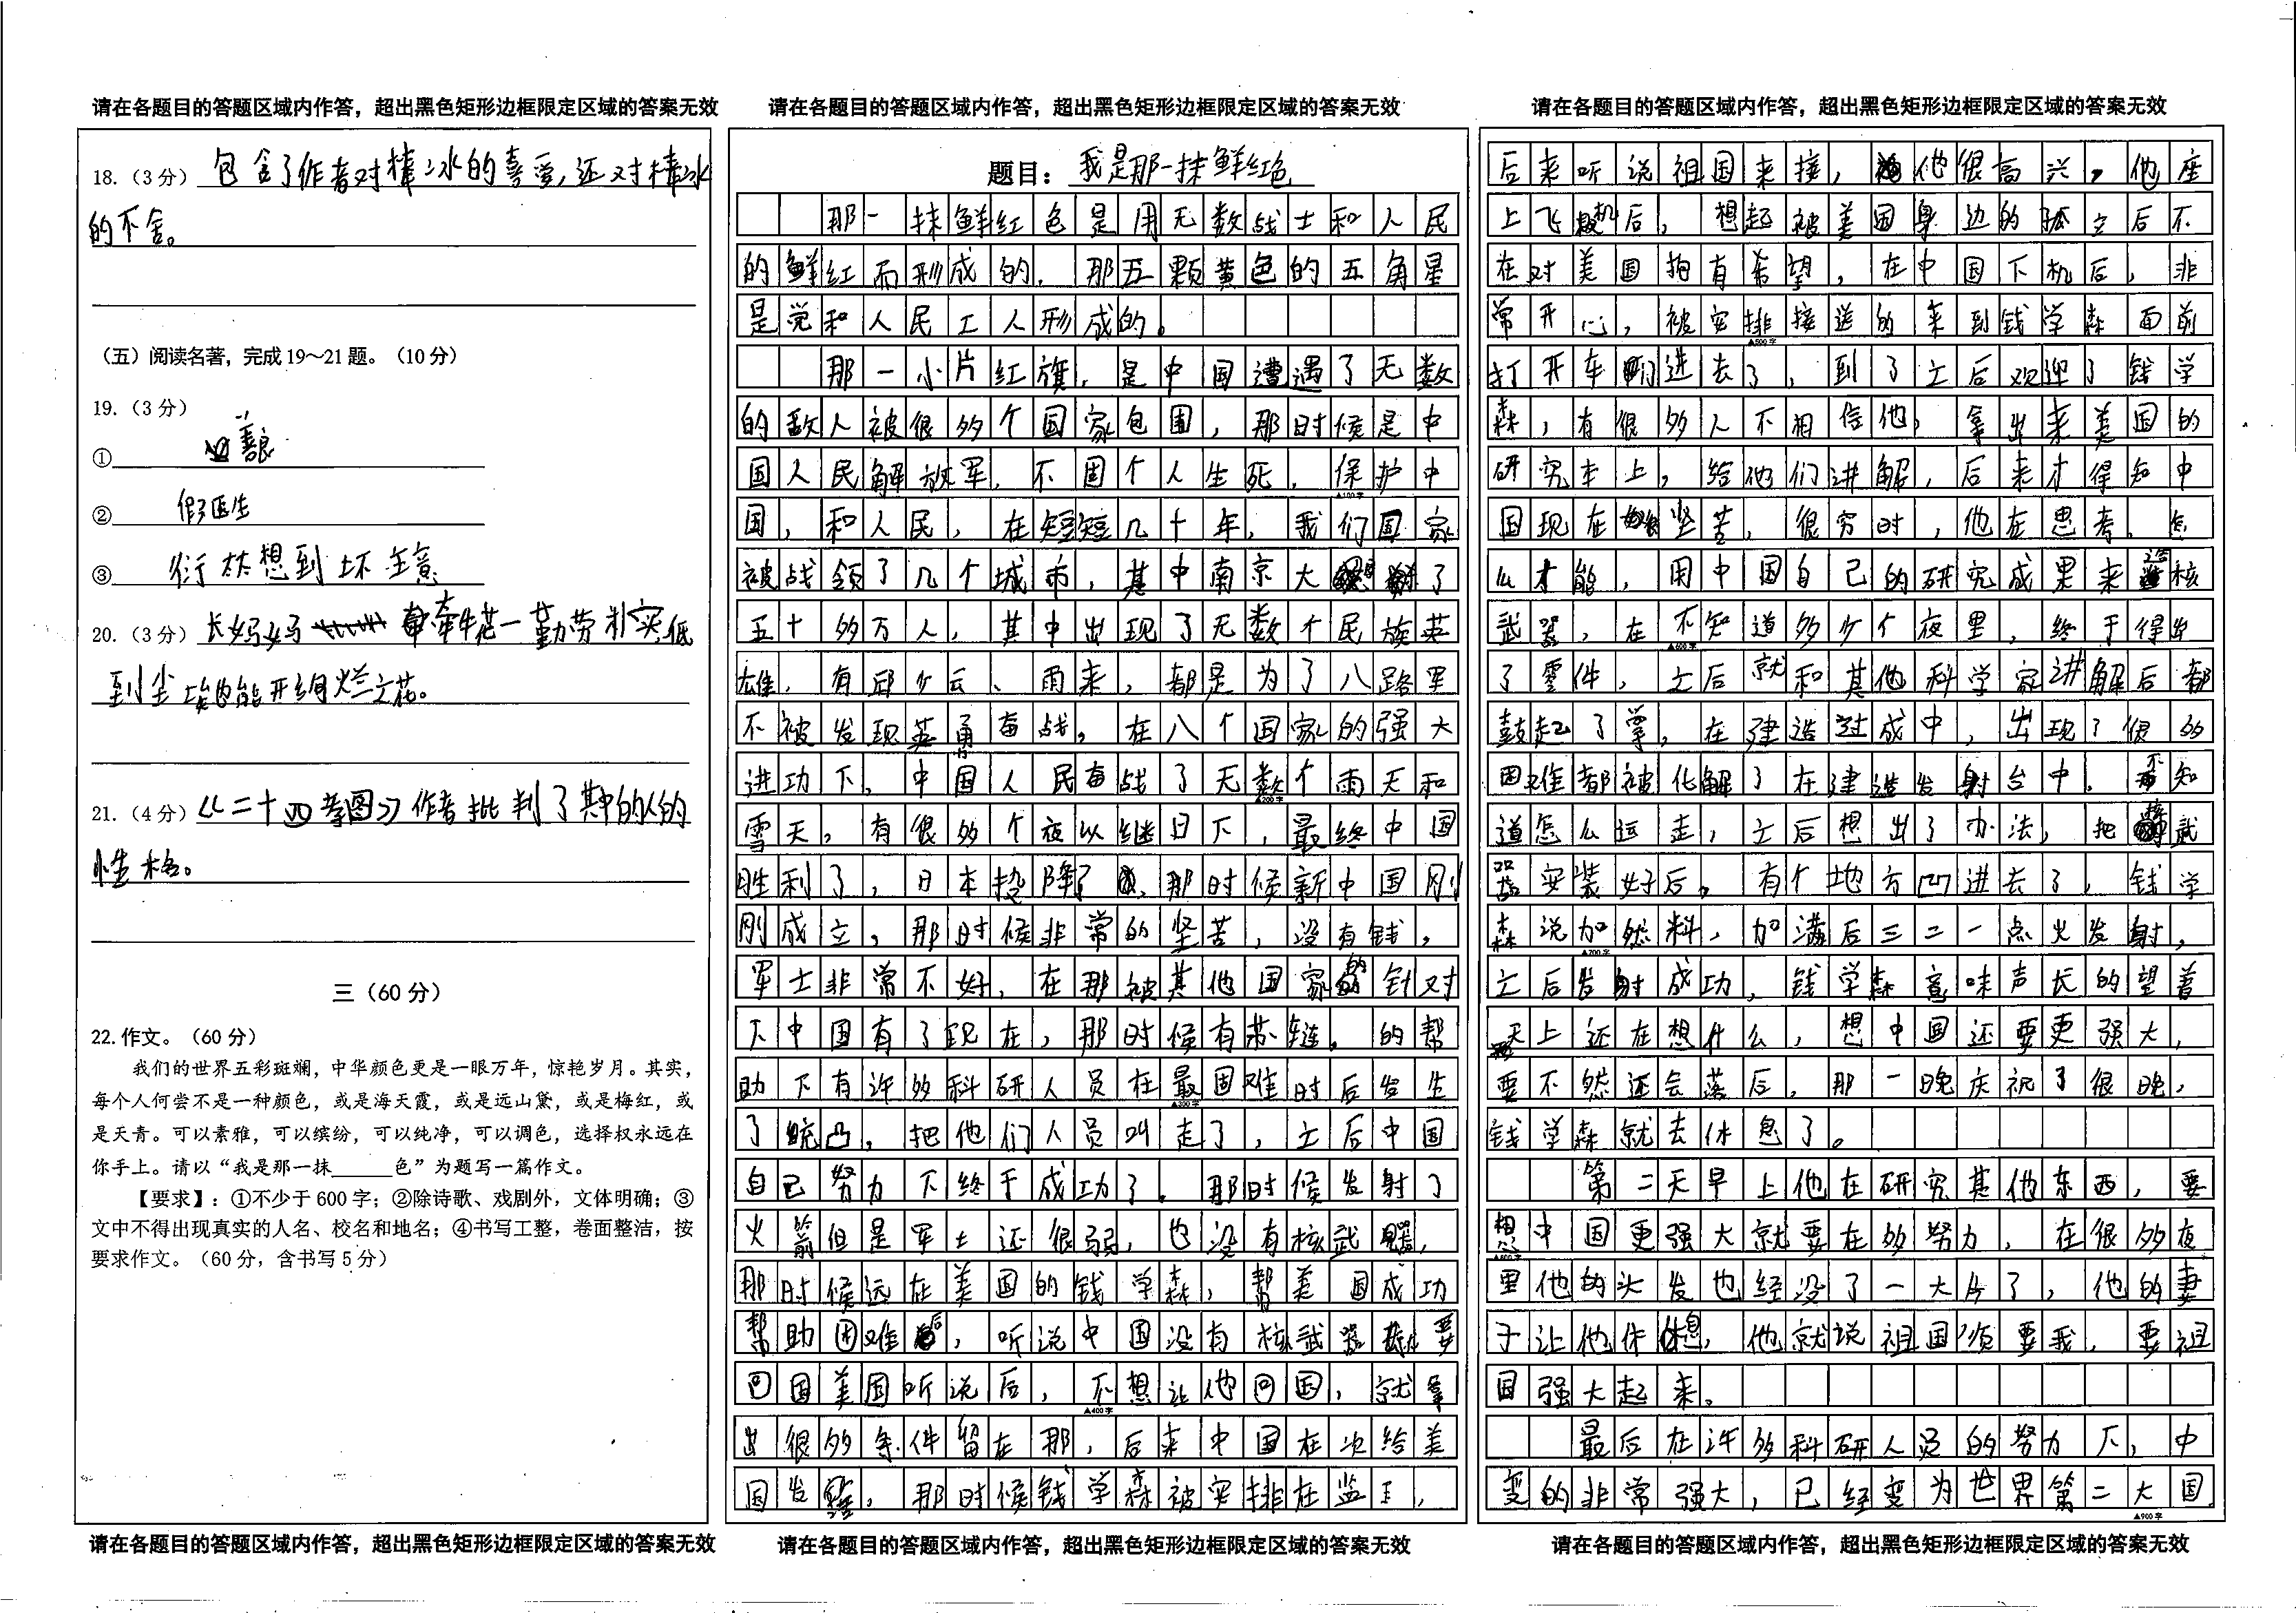 请在各题目的答题区域内作答，超出黑色矩形边框限定区域的答案无效
18.（3分）包含了作者对棒冰的喜爱，还对棒冰
的不舍。
（五）阅读名著，完成19～21题。（10分）
19.（3分）
①
②假医生
③衍太想到坏主意
20.（3分）长妈妈 牵牛花一勤劳朴实低
到尘埃也能开绚烂之花。
21.（4分）《二十四孝图》作者批判了其中的人的
性格。
三（60分）
22.作文。（60分）
我们的世界五彩斑斓，中华颜色更是一眼万年，惊艳岁月。其实，
每个人何尝不是一种颜色，或是海天霞，或是远山黛，或是梅红，或
是天青。可以素雅，可以缤纷，可以纯净，可以调色，选择权永远在
你手上。请以“我是那一抹______色”为题写一篇作文。
【要求】：①不少于600字；②除诗歌、戏剧外，文体明确；③
文中不得出现真实的人名、校名和地名；④书写工整，卷面整洁，按
要求作文。（60分，含书写5分）
请在各题目的答题区域内作答，超出黑色矩形边框限定区域的答案无效
请在各题目的答题区域内作答，超出黑色矩形边框限定区域的答案无效
题目：我是那一抹鲜红色
那一抹鲜红色是用无数战士和人民
的鲜红而形成的，那五颗黄色的五角星
是党和人民工人形成的。
那一小片红旗，是中国遭遇了无数
的敌人被很多个国家包围，那时候是中
国人民解放军，不困个人生死，保护中
▲100字
国，和人民，在短短几十年，我们国家
被战领了几个城市，其中南京大了
五十多万人，其中出现了无数个民族英
雄，有邱少云、雨来，都是为了八路军
不被发现英勇奋战，在八个国家的强大
进功下，中国人民奋战了无数个雨天和
▲200字
雪天，有很多个夜以继日下，最终中国
胜利了，日本投降了，那时候新中国刚
刚成立，那时候非常的坚苦，没有钱，
军士非常不好，在那被其他国家的针对
下中国有了现在，那时候有苏链，的帮
助下有许多科研人员在最困难时后发生
▲300字
了凸，把他们人员叫走了，士后中国
自己努力下终于成功了。那时候发射了
火箭但是军士还很弱，也没有核武器，
那时候远在美国的钱学森，帮美国成功
帮助困难后，听说中国没有核武器要
回国美国听说后，不想让他回国，就拿
▲400字
出很多条件留在那，后来中国在次给美
国发，那时候钱学森被安排在监王，
请在各题目的答题区域内作答，超出黑色矩形边框限定区域的答案无效
请在各题目的答题区域内作答，超出黑色矩形边框限定区域的答案无效
后来听说祖国来接，他很高兴，他座
上飞机后，想起被美国身边的孤立后不
在对美国拥有希望，在中国下机后，非
常开心，被安排接送的来到钱学森面前
▲500字
打开车门进去了，到了士后欢迎了钱学
森，有很多人不相信他，拿出来美国的
研究本上，给他们讲解，后来才得知中
国现在坚苦，很穷时，他在思考，怎
么才能，用中国自己的研究成果来造核
武器，在不知道多少个夜里，终于得出
▲600字
了零件，士后就和其他科学家讲解后都
鼓起了掌，在建造过成中，出现了很的
困难都被化解了在建造发射台中，不知
道怎么运走，士后想出了办法，把核武
器安装好后，有个地方凹进去了，钱学
森说加然料，加满后三二一点火发射，
▲700字
士后发射成功，钱学森意味声长的望着
天上还在想什么，想中国还要更强大，
要不然还会落后，那一晚庆祝了很晚，
钱学森就去休息了。
第二天早上他在研究其他东西，要
想中国更强大就要在多努力，在很多夜
▲800字
里他的头发也经没了一大片了，他的妻
子让他休息，他就说祖国须要我，要祖
国强大起来。
最后在许多科研人员的努力下，中
变的非常强大，已经变为世界第二大国
▲900字
请在各题目的答题区域内作答，超出黑色矩形边框限定区域的答案无效